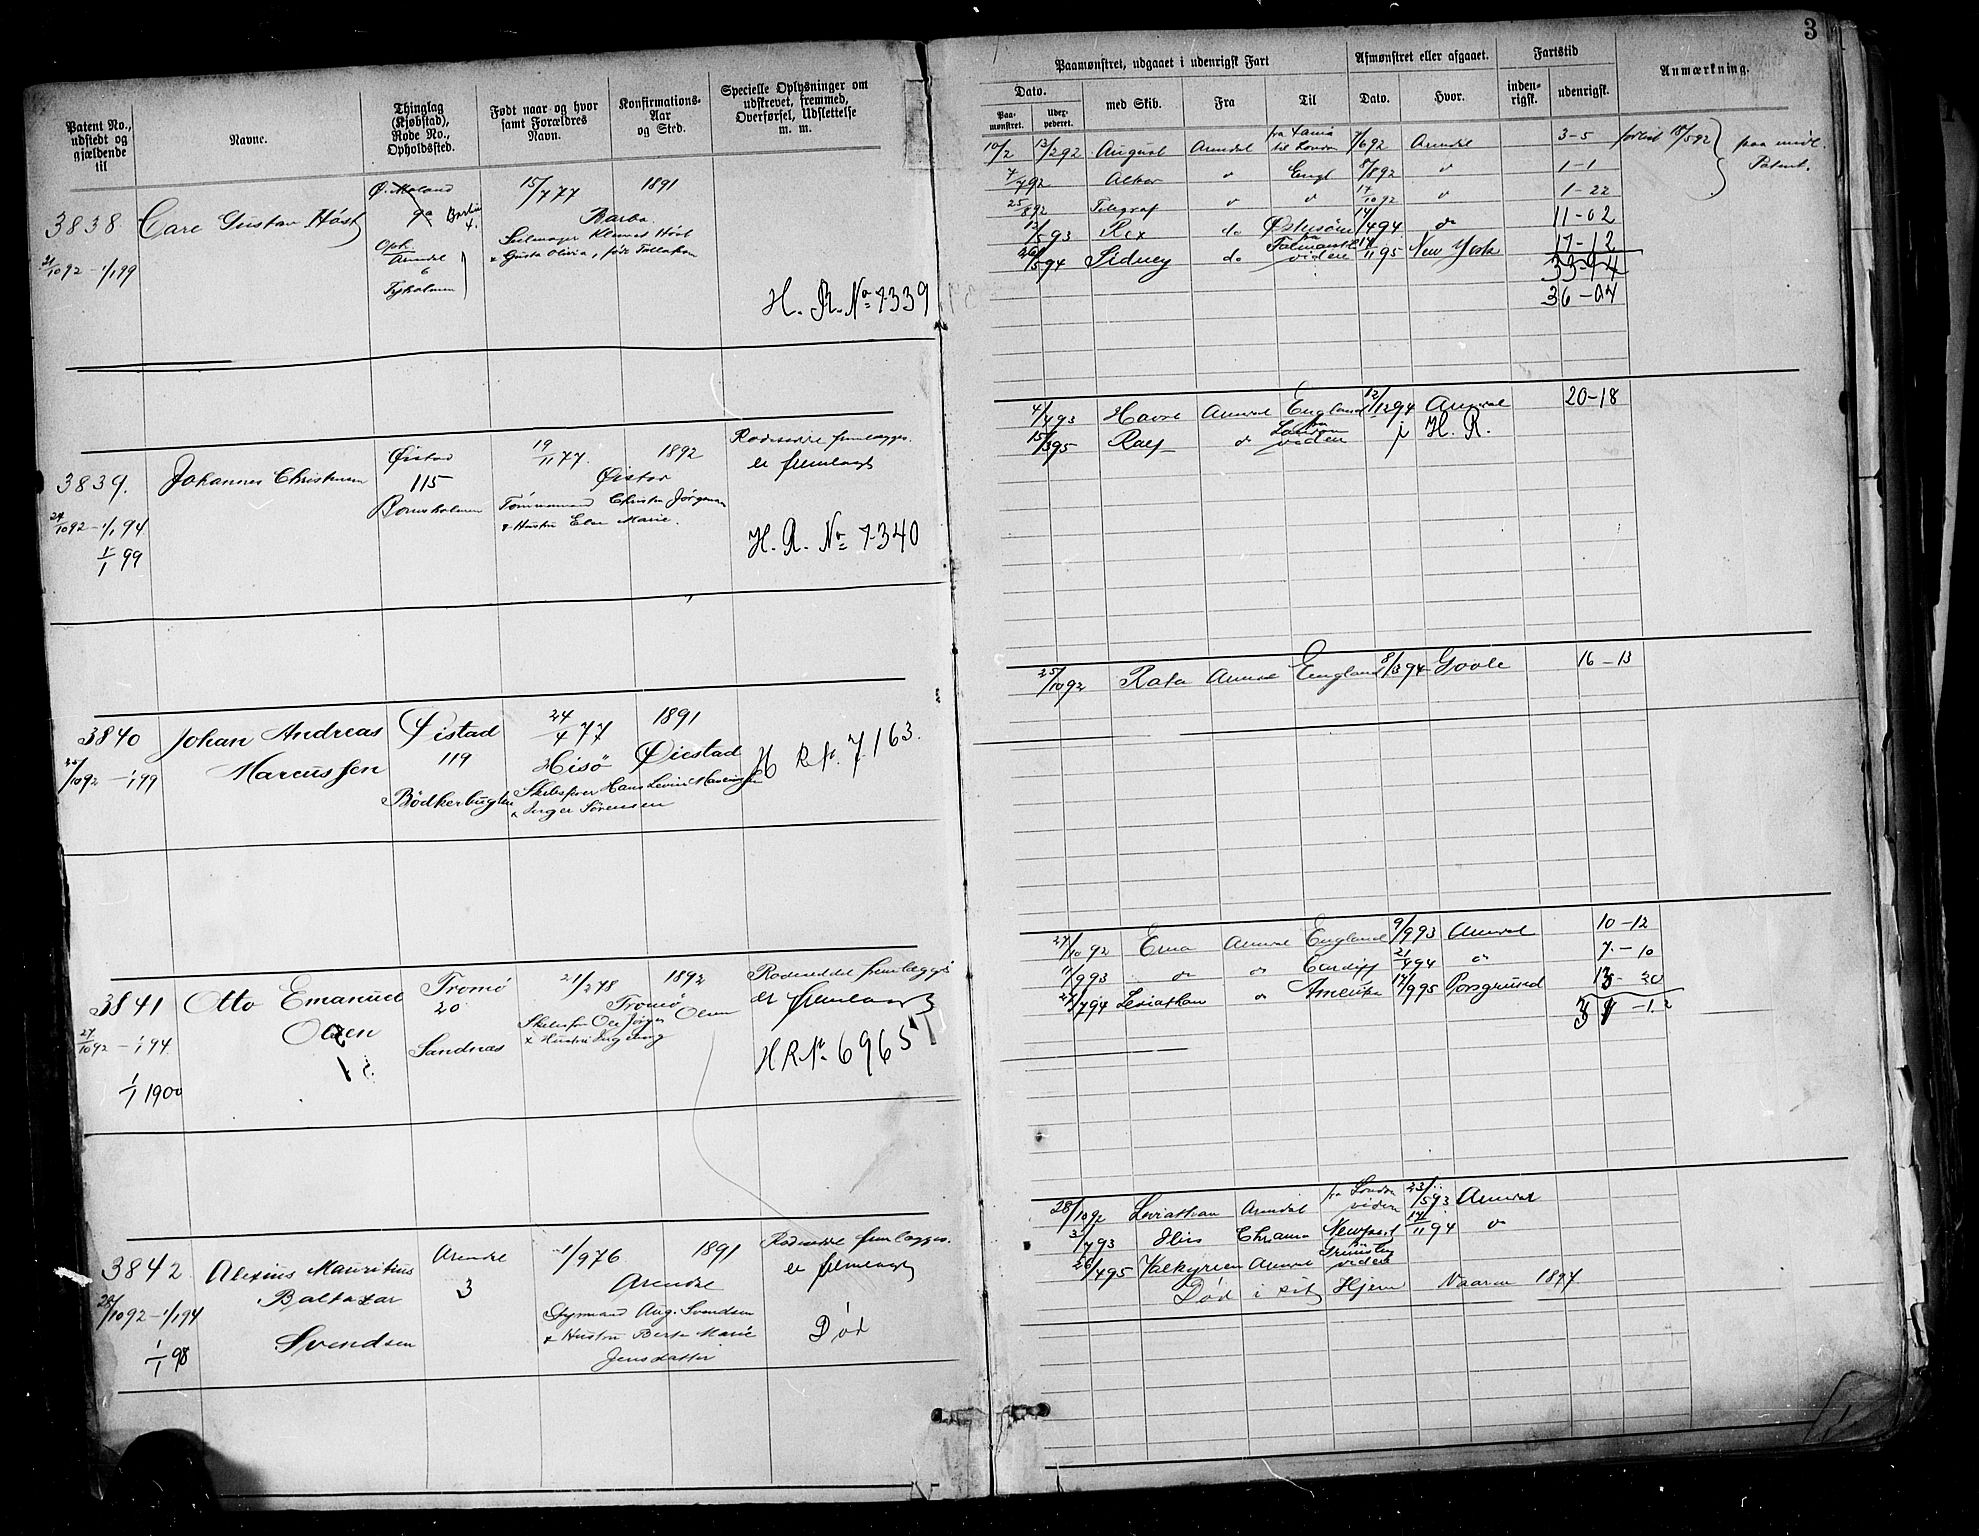 3
Patent No., udstedt og gjældende til
Navne.
Thinglag (Kjøbstad), Rode No., Opholdssted.
Født naar og hvor samt Forældres Navn.
Konfirmations-Aar og Sted.
Specielle Oplysninger om udskrevet, fremmed, Overførsel, Udslettelse m. m.
Paamønstret, udgaaet i udenrigsk Fart
Dato.
Paa-mønstret.
med Skib.
Fra
Til
Afmønstret eller afgaaet.
Dato.
Hvor.
Fartstid
inden-rigsk.
udenrigsk.
Anmærkning.
3838
21/10 92 – 1/1 99
Carl Gustav Höst
Ø. Moland
9a
Oph. Arendal
6
Tyholmen
15/7 77
1891
Barbo
Seilmager Höst
H. R. No 7339
10/2 13/2 92 August Arendal til London 7/6 92 Arendal 3-5 forlist 18/5 92 paa midl. Patent.
4/7 92 " Engl 8/8 92 " 1-1
25/8 92 Telegraf " " 17/10 92 " 1-22
12/5 93 Rex do Østersöen 14/4 94 do 11-02
26/5 94 Sidney do videre 95 New York 17-12
33-14
36-07
3839.
24/10 92 – 1/1 94
1/1 99
Johannes Christensen
Øistad
115
Bornsholmen
19/11 77.
1892
Øistad
Tømmermand
& Hustru Else Marie.
Rodeseddel fremlægges.
er fremlagt
H. R. No 7340
4/4 93 Havre Arendal England 12/12 94 Arendal 20-18
15/3 95 Ralf do London videre i H. R.
3840
25/10 92 – 1/1 99
Johan Andreas
Marcussen
Øistad
119
Bödkerbugten
24/4 77
Hisö
1891
Øiestad
Skibsfører Hans
& Inger Sørensen
H R No. 7163.
25/10 92 Rota Arendal England 8/3 94 Goole 16-13
3841
27/10 92 – 1/1 94.
1/1 1900
Otto Emanuel
Olsen
Tromö
20
Sandnæs
21/2 78
1892
Tromö
Skibsfør Ole Jörgen Olsen
& Hustru Ingeborg
Rodeseddel fremlægges
er fremlagt
H R No 6965
27/10 92 Erna Arendal England 9/9 93 Arendal 10-12
11/9 93 do do Cardiff 21/4 94 do 7-10
27/7 94 Leviathan do Amerika 17/9 95 Porsgrund 13-20
31-12
3842
28/10 92 – 1/1 94
1/1 98
Alexius Mauritius
Baltazar
Svendsen
Arendal
3
1/9 76
1891
Arendal
Styrmand Aug. Svendsen
& Hustru Berte Marie
Jensdatter
Rodeseddel fremlægges.
er fremlagt
Død
28/10 92 Leviathan Arendal fra London videre 23/5 93 Arendal
3/7 93 Newport 17/11 94 do
26/4 95 Valkyrien Arendal Grimsby videre
Død i sit Hjem Vaaren 1897